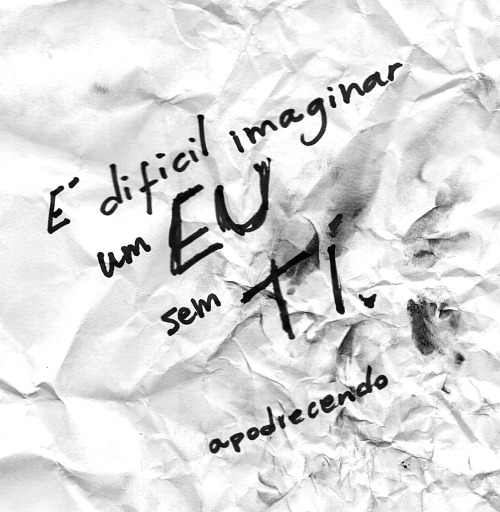 É dificil imaginar
um EU
sem TI.
apodrecendo